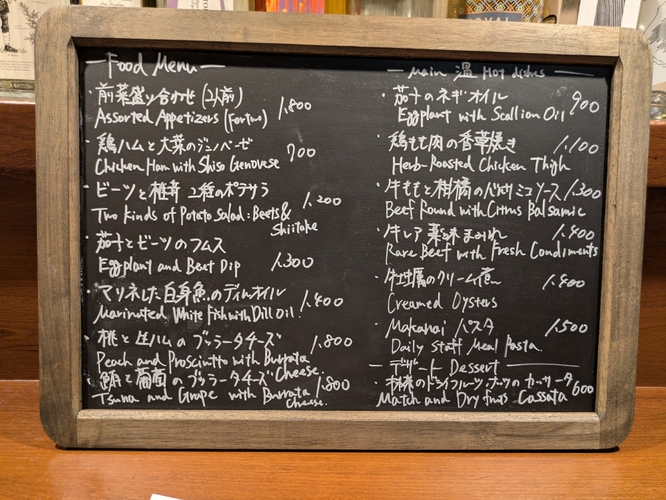 Food Menu
・前菜盛り合わせ (2人前) 1,800
Assorted Appetizers (For two)
・鶏ハムと大葉のジェノベーゼ 700
Chicken Ham with Shiso Genovese
・ビーツと椎茸 2種のポテサラ 1,200
Two kinds of Potato Salad: Beets & Shiitake
・茄子とビーツのフムス 1,300
Eggplant and Beet Dip
・マリネした白身魚のディルオイル 1,400
Marinated White Fish with Dill Oil
・桃と生ハムのブッラータチーズ 1,800
Peach and Prosciutto with Burrata Cheese.
・鮪と葡萄のブッラータチーズ 1,800
Tsuna and Grape with Burrata Cheese.
Main 温 Hot dishes
・茄子のネギオイル 900
Eggplant with Scallion Oil
・鶏もも肉の香草焼き 1,100
Herb-Roasted Chicken Thigh
・牛ももと柑橘のバルサミコソース 1,300
Beef Round with Citrus Balsamic
・牛レア薬味まみれ 1,400
Rare Beef with Fresh Condiments
・牡蠣のクリーム煮 1,400
Creamed Oysters
・Makanai パスタ 1,500
Daily Staff Meal Pasta
デザート Dessert
・抹茶のドライフルーツ・ナーツのカッサータ 600
Match and Dry fruits Cassata